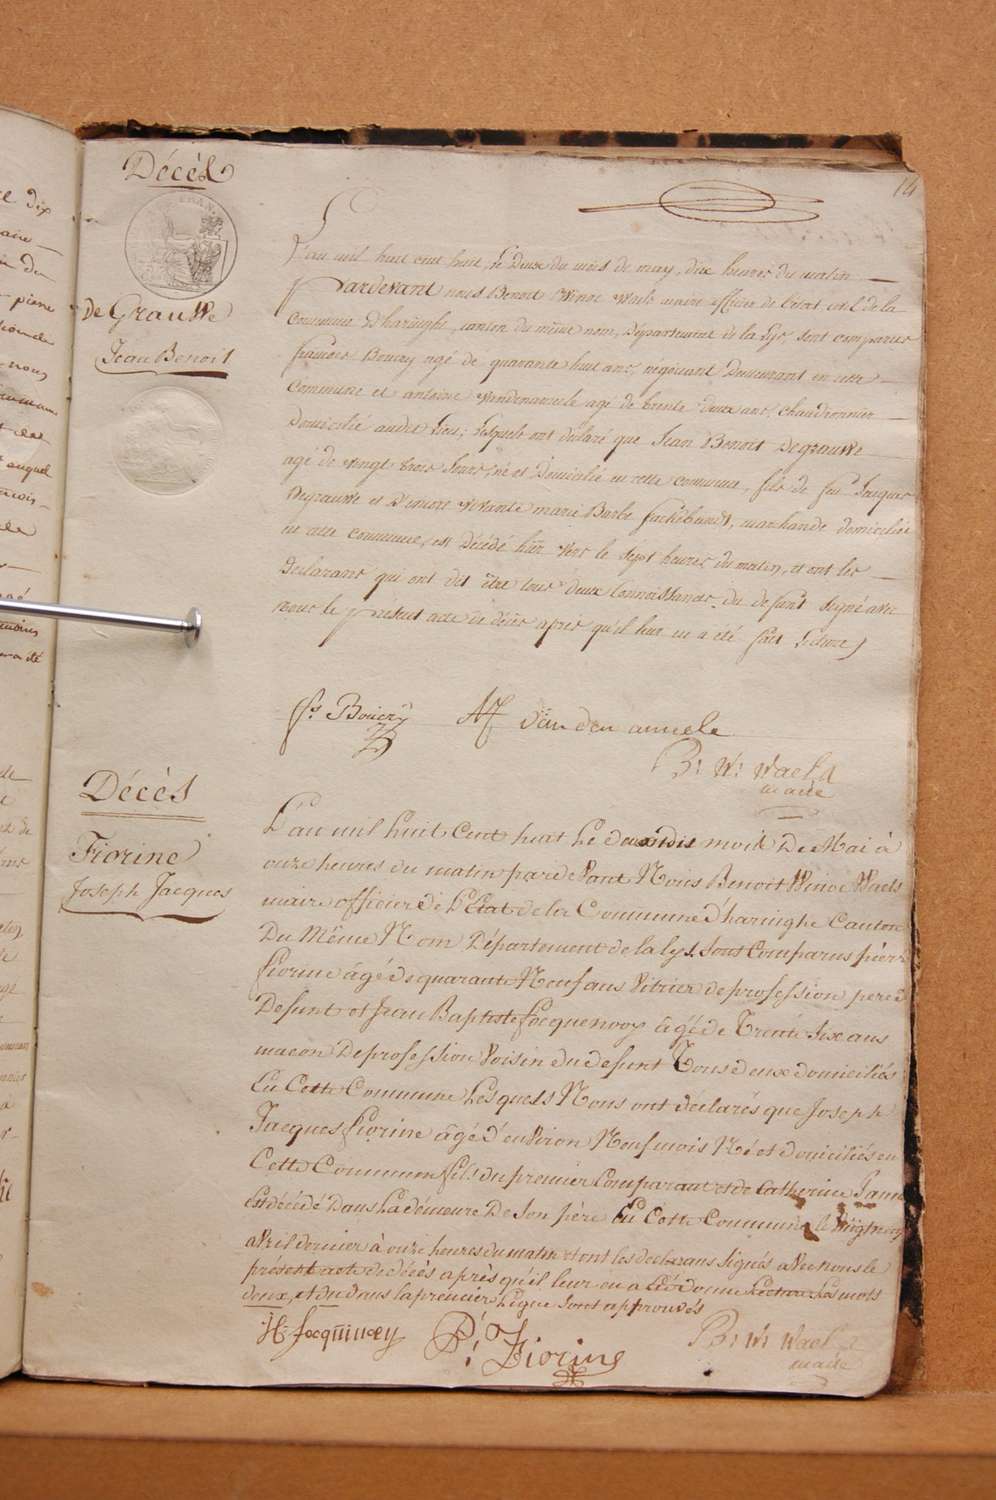 14
Décès
de Grauwe
Jean Benoit
L'an mil huit cent huit, le Deux du mois de may, dix heures du matin
Pardevant nous Benoit Winoc Waels maire officier de l'état civil de la
Commune d'haringhe, canton du même nom, Département de la Lys, sont comparus
françois Boucry agé de quarante huit ans, négociant Demeurant en cette
Commune et antoine Vandenameele agé de trente deux ans, chaudronnier
Domicilié audit lieu; lesquels ont déclaré que Jean Benoit Degrauwe
agé de vingt trois Jours, né et Domicilié en cette commune, fils de feu Jacques
Degrauwe et d'encore vivante marie Barbe fackebandt, marchande domiciliée
en cette commune, est Décédé hier vers le sept heures du matin, et ont les
Declarans qui ont dit être tous deux Connoissances du defunt Signé avec
nous le présent acte de décès après qu'il leur en a été fait Lecture
fs. Boucry
AF van den ameele
B: W: Waels
maire
Décès
Fiorine
Joseph Jacques
L'an mil huit Cent huit Le deux du mois De Mai à
onze heures du matin pardevant Nous Benoit Winoc Waels
maire officier de L'Etat de la Commune d'haringhe Canton
Du Même Nom Département de la lys Sont Comparus pierre
fiorine âgé de quarante Neuf ans Vitrier de profession pere d
Defunt et Jean Baptiste Jocquenooy âgé de Trente six ans
macon De profession Voisin du defunt Tous deux domiciliés
En Cette Commune Lesquels Nous ont declarés que Joseph
Jacques fiorine âgé d'environ Neuf mois Né et domiciliés en
Cette Commune fils du premier Comparant et de Catherine
Est décédé Dans La démeure De Son père En Cette Commune le vingt neuf
avril dernier à onze heures du matin et ont les declarans signés avec nous le
présent acte de décès après qu'il leur en a été donné Lecture Les mots
deux, et du dans la premier Ligne sont approuvés
P: J Fiorine
B: W: Waels
maire